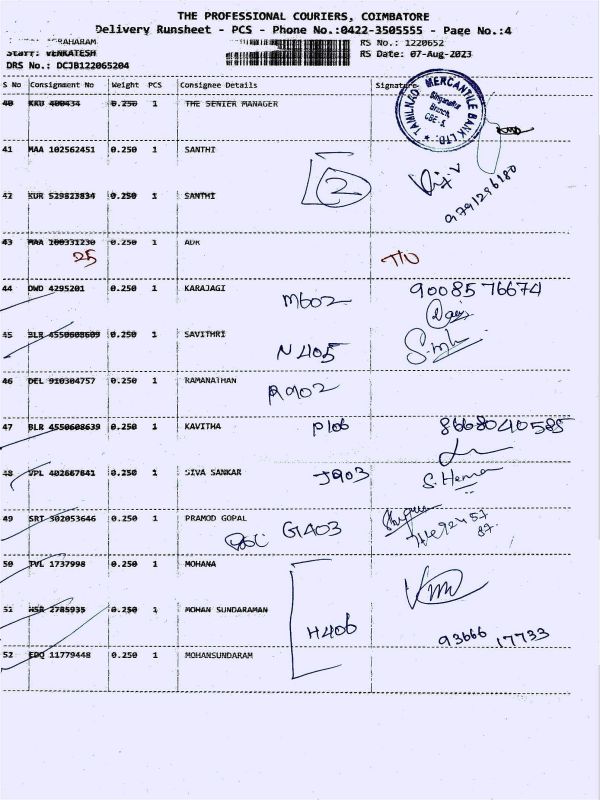 THE PROFESSIONAL COURIERS, COIMBATORE
Delivery Runsheet - PCS - Phone No.:0422-3505555 - Page No.:4
RS No.: 1220652
Staff: VENKATESH RS Date: 07-Aug-2023
DRS No.: DCJB122065204
S No Consignment No Weight PCS Consignee Details Signature
40 KKU 400434 0.250 1 THE SENIER MANAGER
TAMILNAD MERCANTILE BANK LTD.
Branch,
CBE-5
41 MAA 102562451 0.250 1 SANTHI
2
42 KUR 529823834 0.250 1 SANTHI
9791296180
43 MAA 100331230 0.250 1 ADR
25
44 DWD 4295201 0.250 1 KARAJAGI
M602 9008576674
45 BLR 4550608609 0.250 1 SAVITHRI
N405
46 DEL 910304757 0.250 1 RAMANATHAN
R902
47 BLR 4550608639 0.250 1 KAVITHA P106 8668040585
48 VPL 402667841 0.250 1 SIVA SANKAR J903 S. Hema
49 SRT 302053646 0.250 1 PRAMOD GOPAL
G1403
50 TVL 1737998 0.250 1 MOHANA
51 HSR 2785935 0.250 1 MOHAN SUNDARAMAN
H406 93666 17733
52 EDQ 11779448 0.250 1 MOHANSUNDARAM